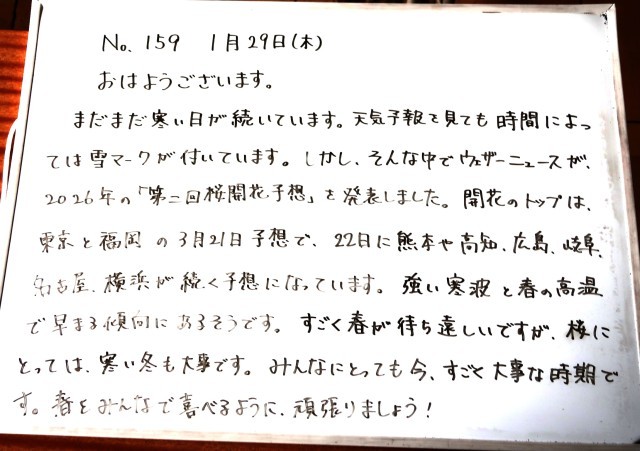 No. 159 1月29日(木)
おはようございます。
まだまだ寒い日が続いています。天気予報を見ても時間によっ
ては雪マークが付いています。しかし、そんな中でウェザーニュースが、
2026年の「第二回桜開花予想」を発表しました。開花のトップは、
東京と福岡の3月21日予想で、22日に熊本や高知、広島、岐阜、
名古屋、横浜が続く予想になっています。強い寒波と春の高温
で早まる傾向にあるそうです。すごく春が待ち遠しいですが、桜に
とっては、寒い冬も大事です。みんなにとっても今、すごく大事な時期で
す。春をみんなで喜べるように、頑張りましょう!